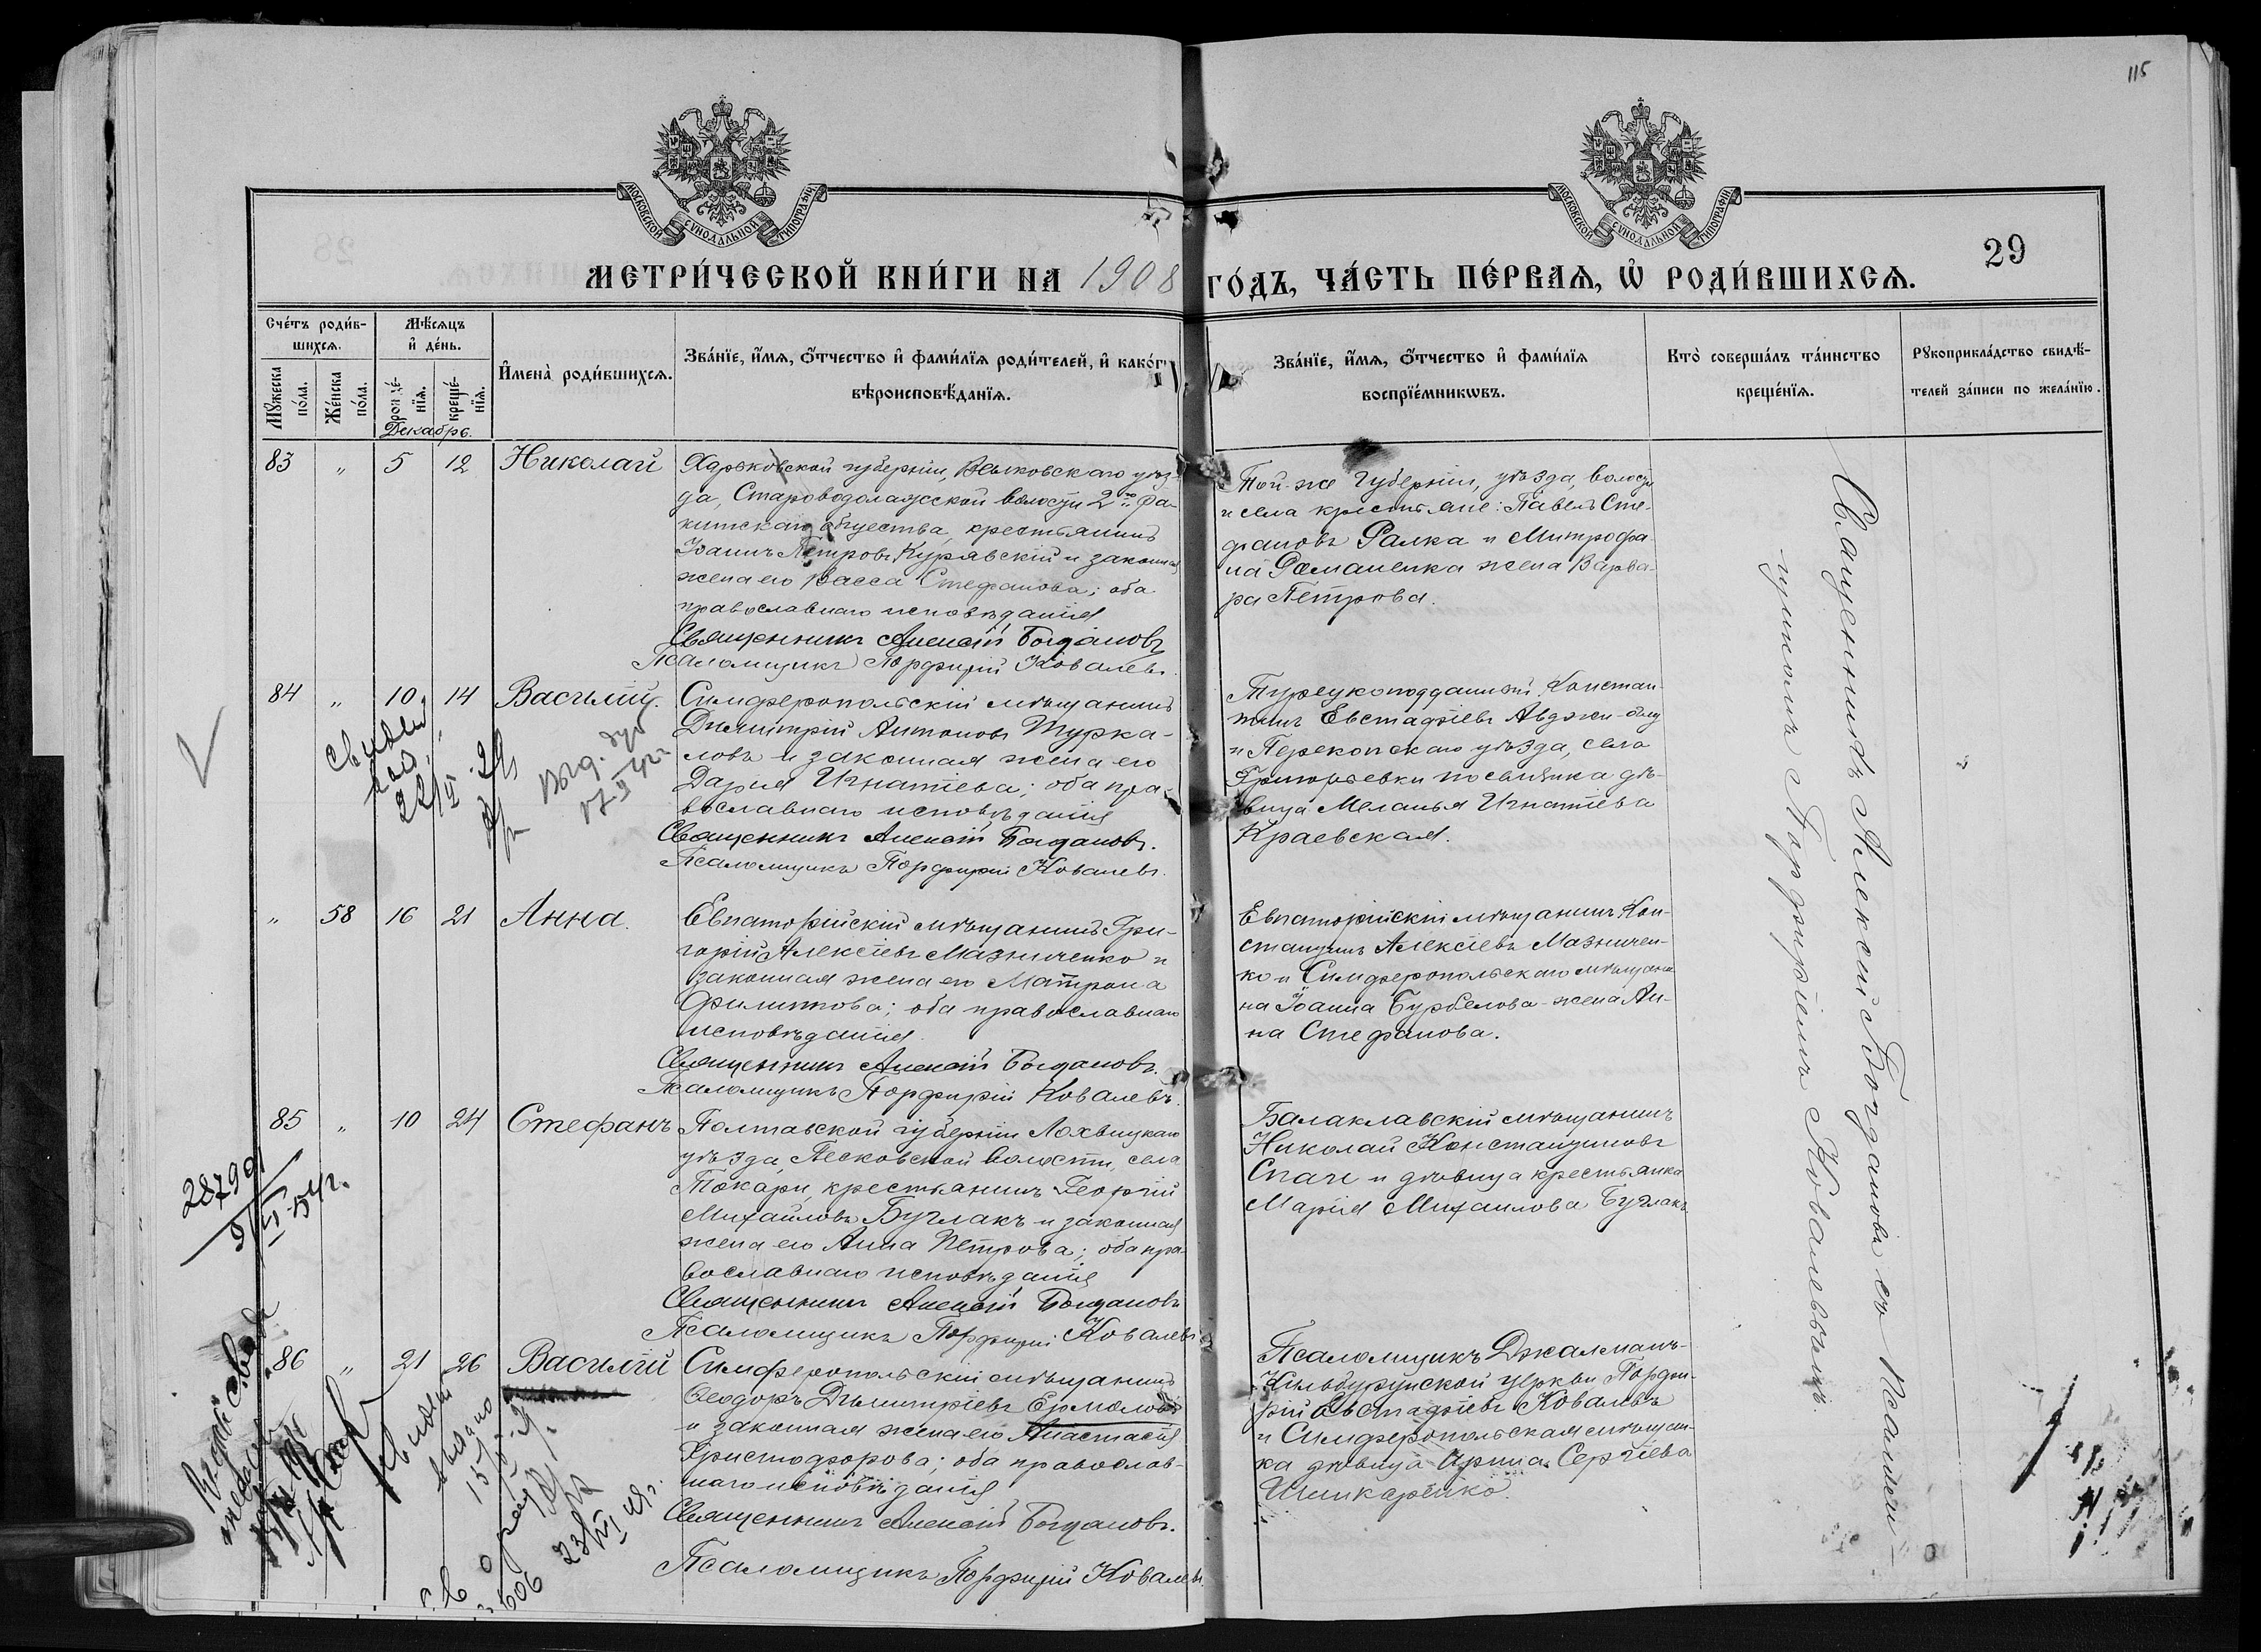 115
МОСКОВСКОЙ СУНОДАЛЬНОЙ ТИПОГРАФІИ
МОСКОВСКОЙ СУНОДАЛЬНОЙ ТИПОГРАФІИ
29
МЕТРИ́ЧЕСКОЙ КНИ́ГИ НА 1908
ГО́ДЪ, ЧА́СТЬ ПЕ́РВАѦ, Ѡ҆ РОДИ́ВШИХСѦ.
Сче́тъ роди́в-
шихсѧ.
Мꙋжеска по́ла.
Же́нска по́ла.
Мѣ́сѧцъ
и҆ де́нь.
рожде́-
нїѧ.
креще́-
нїѧ.
Декабрь.
И҆мена̀ роди́вшихсѧ.
Зва́нїе, и҆́мѧ, ѻ҆́тчество и҆ фами́лїѧ роди́телей, и҆ како́гѡ
вѣроисповѣ́данїѧ.
Зва́нїе, и҆́мѧ, ѻ҆́тчество и҆ фами́лїѧ
воспрїе́мникѡвъ.
Кто̀ соверша́лъ та́инство
креще́нїѧ.
Рꙋкоприкла́дство свидѣ́-
телей за́писи по жела́нїю.
83 „ 5 12 Николай
Харьковской губерніи, Валковскаго уѣз-
да, Староводолажской волости 2го Ра-
китскаго общества, крестьянинъ
Іоаннъ Петровъ Курявскій и законная
жена его Васса Стефанова; оба
православнаго исповѣданія
Священникъ Алексій Богдановъ
Псаломщикъ Порфирій Ковалевъ.
Той-же губерніи, уѣзда, волости
и села крестьяне: Павелъ Сте-
фановъ Ралка и Митрофа
на Романенка жена Варва-
ра Петрова.
84 „ 10 14 Василій.
Симферопольскій мѣщанинъ
Димитрій Антоновъ Турка-
ловъ и законная жена его
Дарья Игнатіева; оба пра-
вославнаго исповѣданія
Священникъ Алексій Богдановъ.
Псаломщикъ Порфирій Ковалевъ.
Турецкоподданный Констан-
тинъ Евстафіевъ Авджи-оглу
и Перекопскаго уѣзда, села
Григорьевки поселянка дѣ-
вица Меланья Игнатіева
Краевская.
„ 58 16 21 Анна.
Евпаторійскій мѣщанинъ Гри-
горій Алексіевъ Мазниченко и
законная жена его Матрона
Филиппова; оба православнаго
исповѣданія.
Священникъ Алексій Богдановъ.
Псаломщикъ Порфирій Ковалевъ.
Евпаторійскій мѣщанинъ Кон-
стантинъ Алексіевъ Мазничен-
ко и Симферопольскаго мѣщани
на Іоанна Бурбелова жена Ан-
на Стефанова.
85 „ 10 24 Стефанъ
Полтавской губерніи Лохвицкаго
уѣзда, Песковской волости, села
Токари, крестьянинъ Георгій
Михайловъ Буглакъ и законная
жена его Анна Петрова; оба пра-
вославнаго исповѣданія
Священникъ Алексій Богдановъ
Псаломщикъ Порфирій Ковалевъ
Балаклавскій мѣщанинъ
Николай Константиновъ
Спаи и дѣвица крестьянка
Марія Михаилова Буглакъ
28799
86 „ 21 26 Василій
Симферопольскій мѣщанинъ
Ѳеодоръ Димитріевъ Ермоловъ
и законная жена его Анастасія
Христофорова; оба православ-
наго исповѣданія
Священникъ Алексій Богдановъ.
Псаломщикъ Порфирій Ковалевъ.
Псаломщикъ Джалманъ-
Кильбурунской церкви Порфи-
рій Евстафіевъ Ковалевъ
и Симферопольская мѣщан-
ка дѣвица Ирина Сергіева
Шинкаренко.
Священникъ Алексій Богдановъ съ Псалом-
щикомъ Порфиріемъ Ковалевымъ.